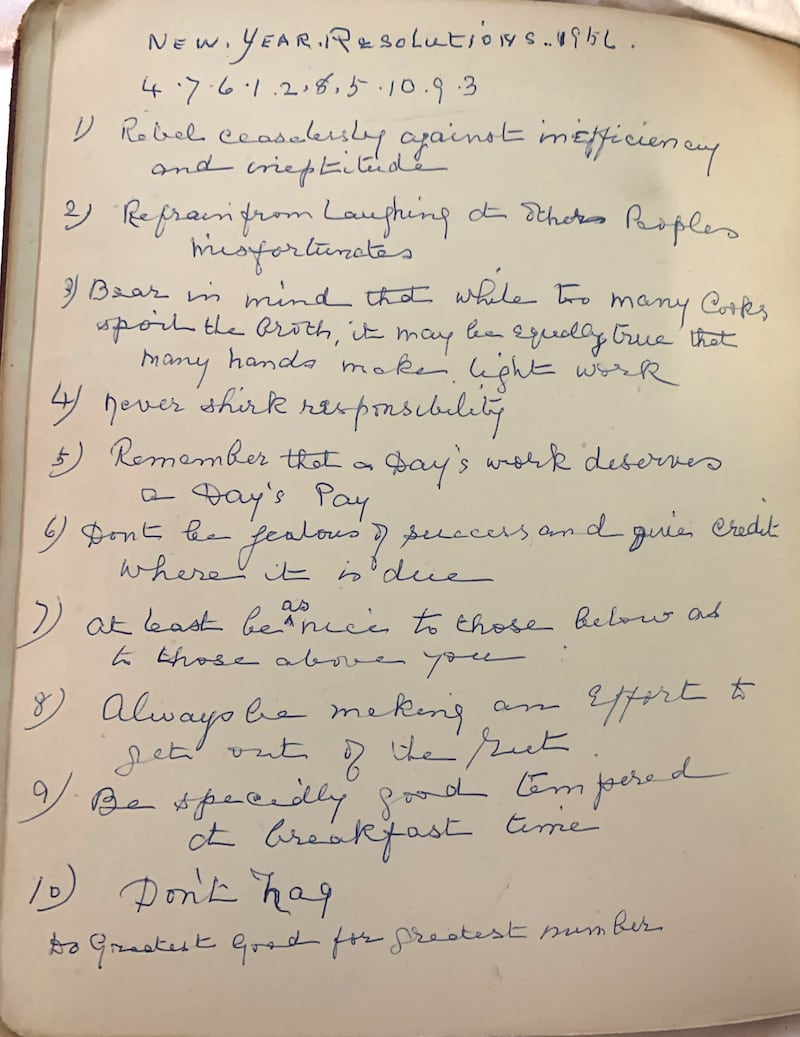 NEW. YEAR. RESOLUTIONS.. 1956.
4 . 7 . 6 . 1 . 2 . 8 . 5 . 10 . 9 . 3
1) Rebel ceaselessly against inefficiency
and ineptitude
2) Refrain from Laughing at others Peoples
misfortunates
3) Bear in mind that while too many Cooks
spoil the broth, it may be equally true that
many hands make light work
4) never shirk responsibility
5) Remember that a Day's work deserves
a Day's Pay
6) Dont be jealous of success and give credit
where it is due
7) at least be as nice to those below as
to those above you
8) Always be making an Effort to
get out of the Rut.
9) Be specially good tempered
at breakfast time
10) Don't Nag
Do Greatest Good for greatest number